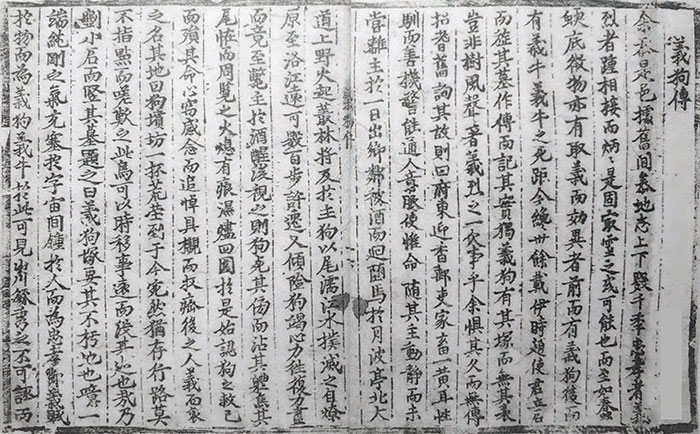 義狗傳
余莅是邑據舊聞慕地志上下數千季忠孝者義
烈者踵相接而炳炳是固最靈之或可能也而至如蠢
蝡底微物亦有取義而効異者前而有義狗後而
有義牛義牛之死距今纔卅餘載伊時趙使君立石
而旌其墓作傳而記其實獨義狗有其塚而無其表
豈非樹風聲著義烈之一欠事乎余惧其久而無傳
招耆舊詢其故則曰府東迎香鄕吏家畜一黃耳性
馴而善機警能通人意服使惟命 随其主動靜而未
嘗離主於一日出鄕鄰被酒而廻随馬於月波亭北大
道上野火起叢林將及於主狗以尾濡江水撲滅之自燎
原至洛江遠可數百步許還又傾險狗竭心力往復力盡
而竟至斃主於酒醒後視之則狗免其傷而沾其軆焦其
尾恠而周覧之火燒有痕濕燼四圍於是始認狗之救己
而殞其命心窃感念而追悼具櫬而収瘞後之人義而哀
之名其地曰狗墳坊一抔荒坐到于今宛然猶存行路莫
不指點而嗟歎之此焉可以時移事遠而終其泯也哉乃
劖小石而竪其墓題之曰義狗塚要其不朽地也噫一
端純剛之氣充塞於宇宙間鍾於人而為忠孝節義賦
於物而爲義狗義牛於此可見彛之不可誣而